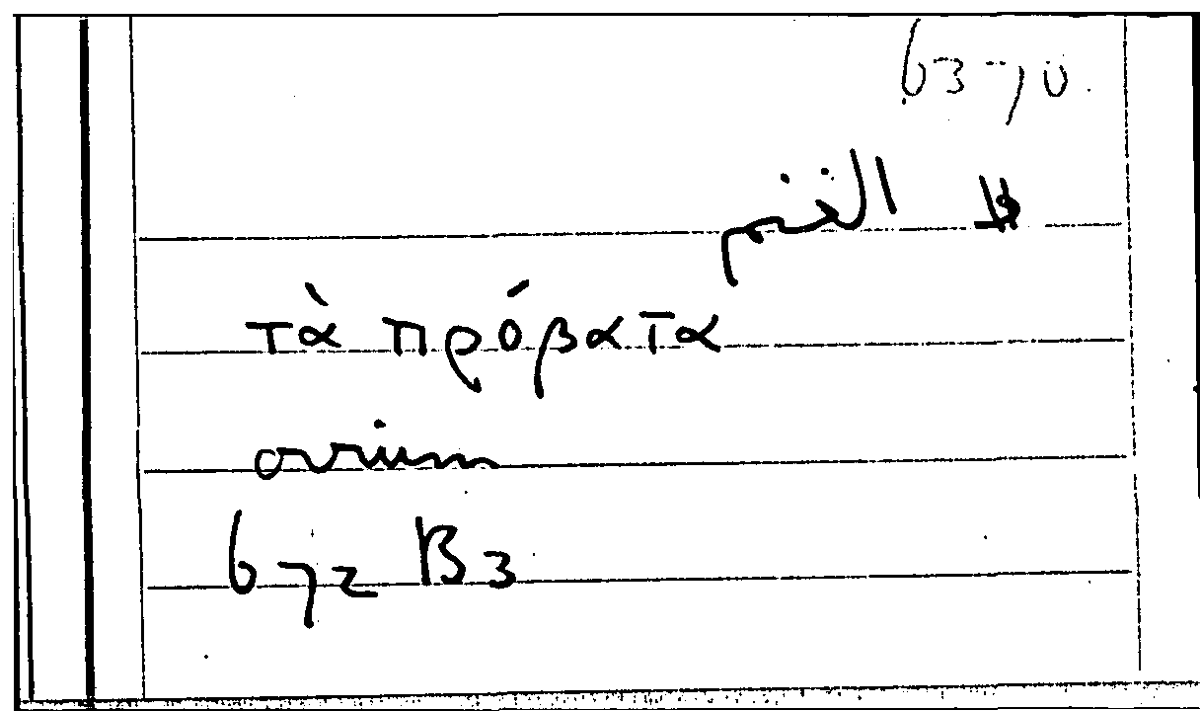 الغنم
τὰ πρόβατα
ovium
672 B3